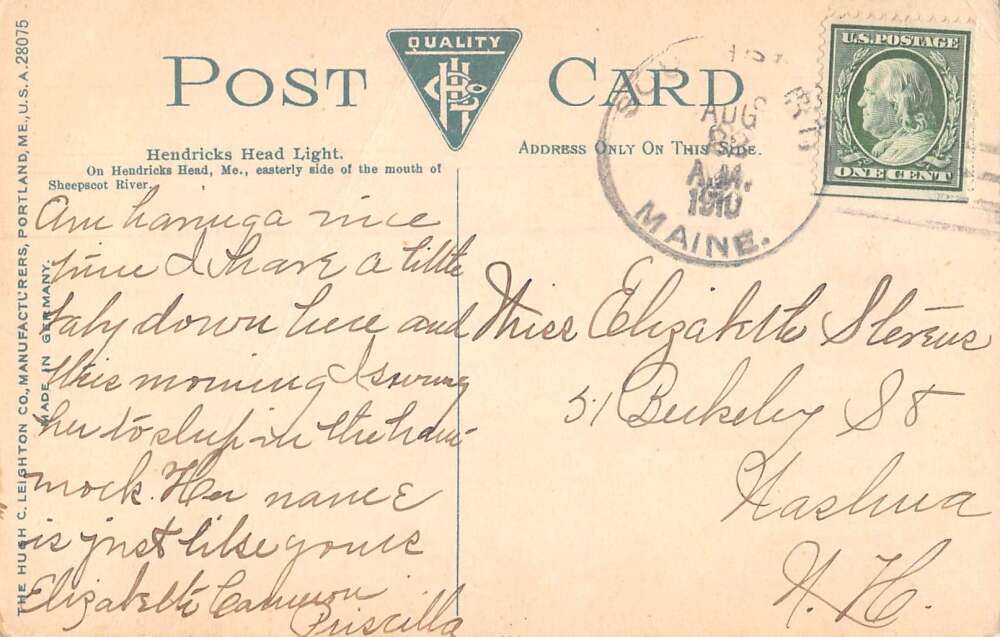 THE HUGH C. LEIGHTON CO., MANUFACTURERS, PORTLAND, ME., U.S.A. 28075
MADE IN GERMANY.
POST CARD
QUALITY
Hendricks Head Light.
On Hendricks Head, Me., easterly side of the mouth of
Sheepscot River.
ADDRESS ONLY ON THIS SIDE.
AUG
A.M.
1910
MAINE.
U.S. POSTAGE
ONE CENT
Am having a nice
time I have a little
baby down here and
this morning I swung
her to sleep in the ham
mock. Her name
is just like yours
Elizabeth Cameron
Priscilla
Miss Elizabeth Stevens
51 Berkeley St
Nashua
N. H.